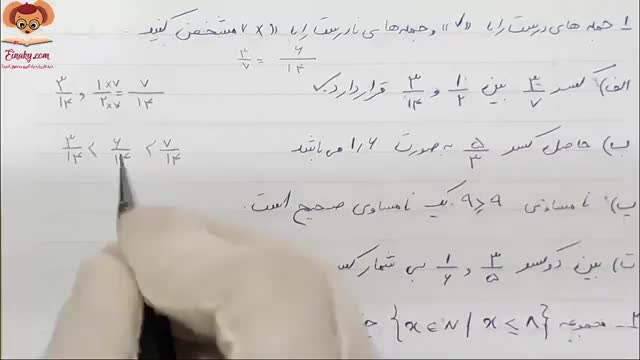 Einaky.com
۱ جمله های درست را با «✓» و جمله های نادرست را با «×» مشخص کنید.
۳/۷ = ۶/۱۴
الف) کسر ۳/۷ بین ۱/۲ و ۳/۱۴ قرار دارد. ✓
۳/۱۴ , ۱×۷/۲×۷ = ۷/۱۴
ب) حاصل کسر ۵/۳ به صورت ۱٫۶ می باشد
۳/۱۴ < ۶/۱۴ < ۷/۱۴
پ) نامساوی ۹ ≥ ۹ یک نامساوی صحیح است.
ت) بین دو کسر ۳/۵ و ۱/۶ بی شمار کسر
مجموعه {x ∈ N | x ≤ ۸}